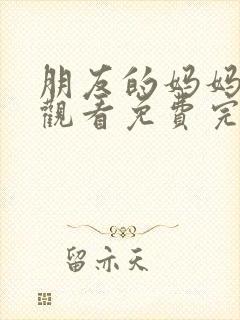 朋友的妈妈
觀看免費完
留亦天